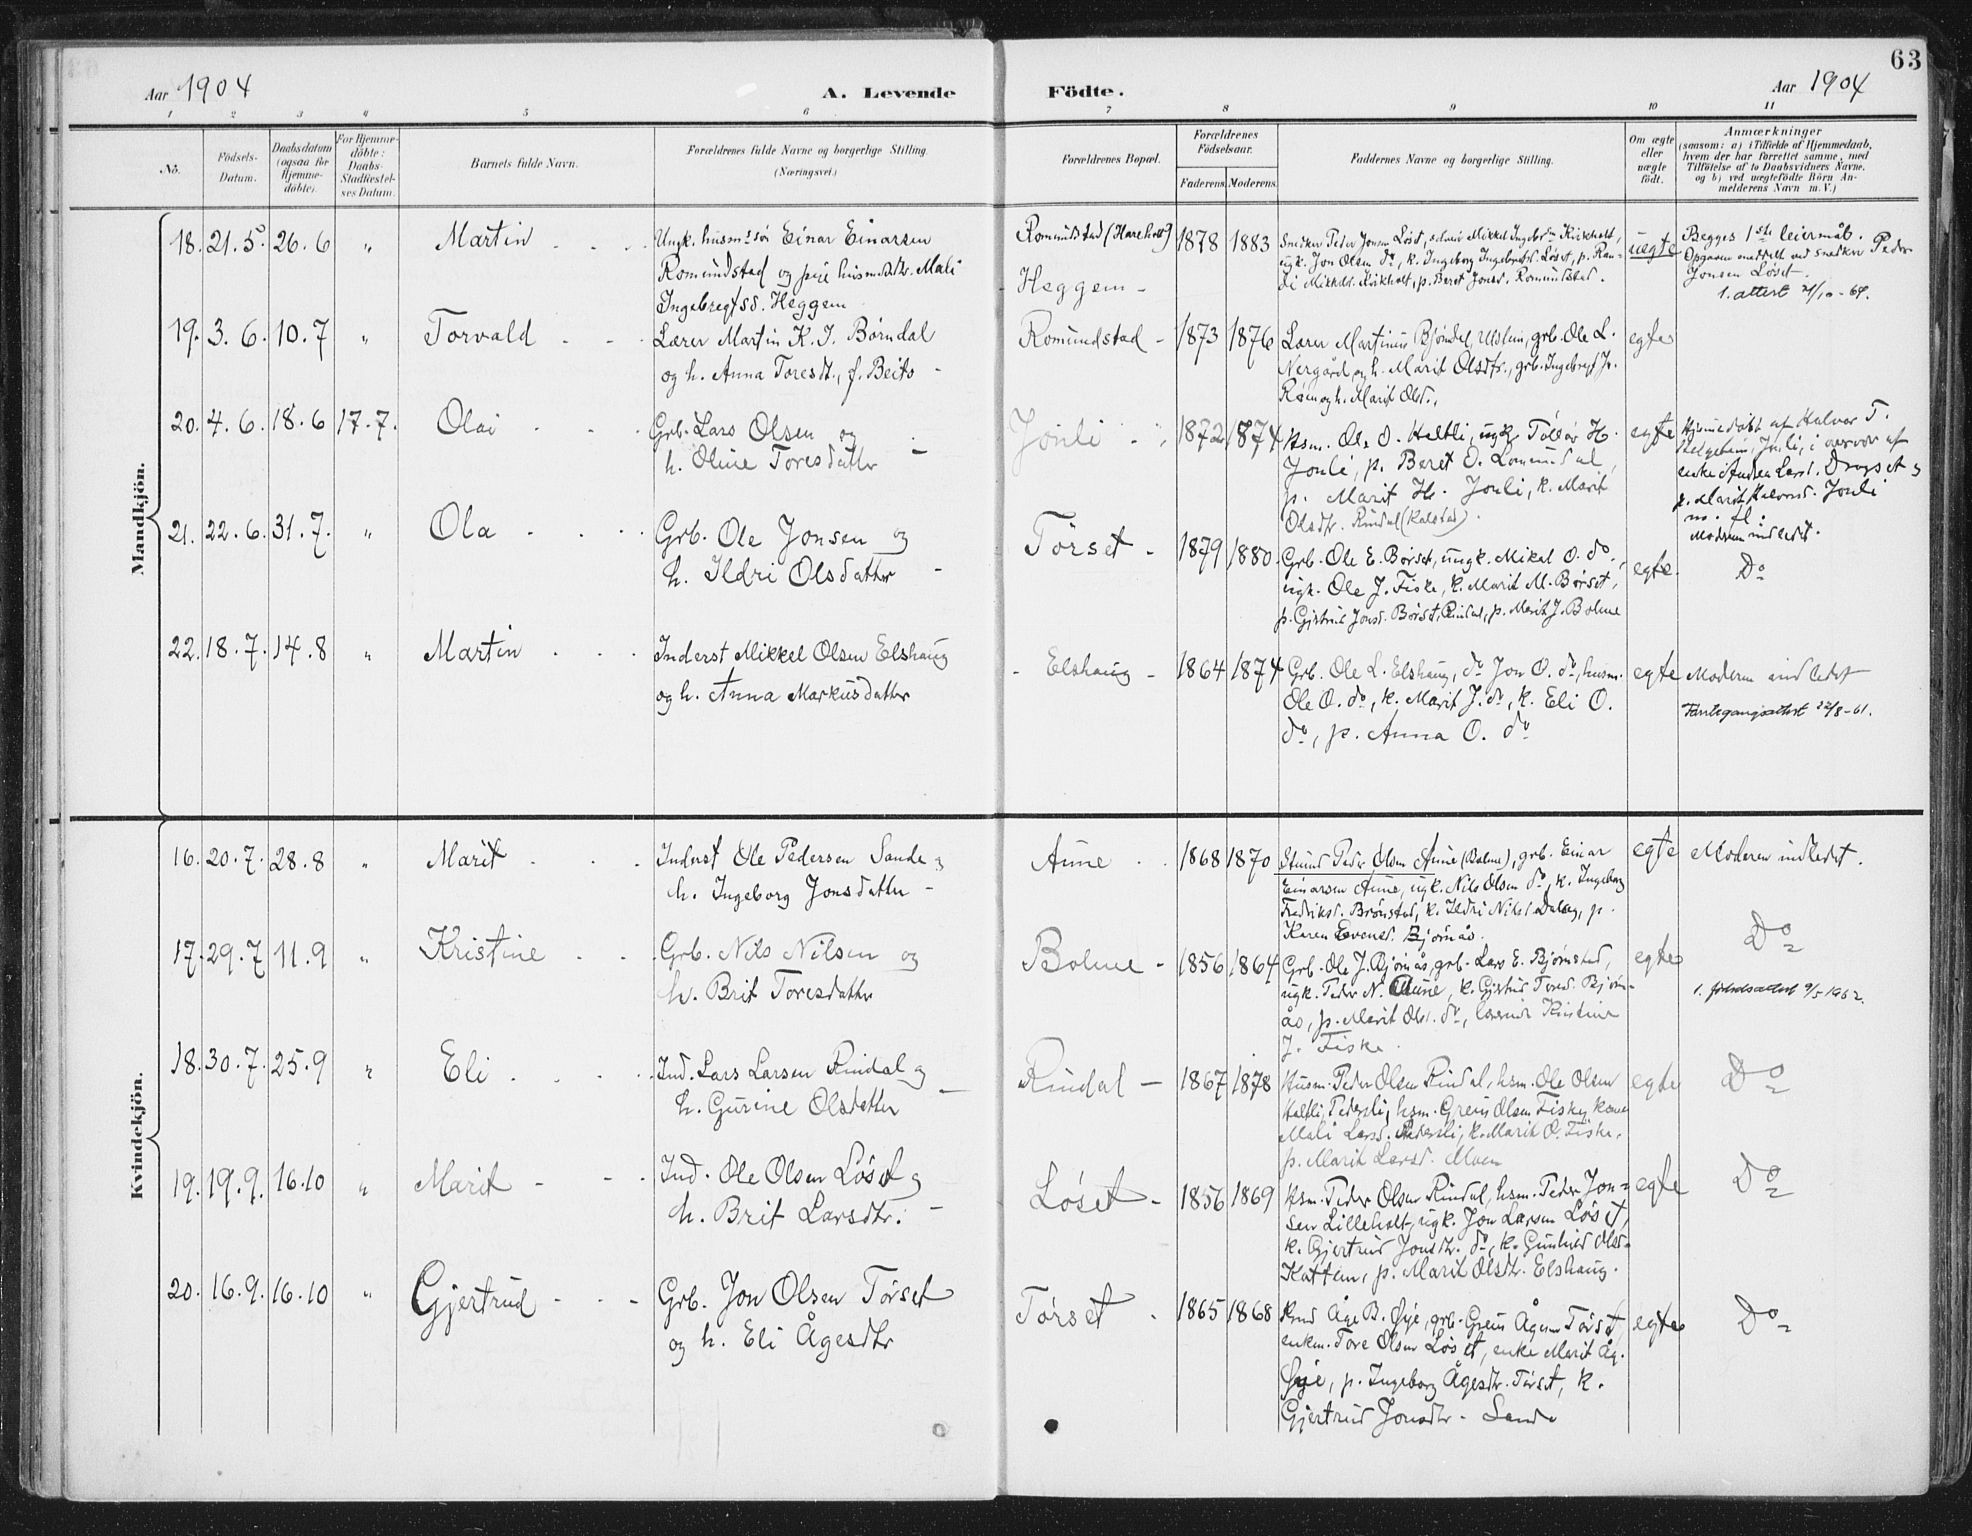 63
Aar 1904 A. Levende Födte. Aar 1904
1 2 3 4 5 6 7 8 9 10 11
No. Födsels-Datum. Daabsdatum (ogsaa for Hjemme-döbte). For Hjemme-döbte: Daabs-Stadfæstel-ses Datum. Barnets fulde Navn. Forældrenes fulde Navne og borgerlige Stilling. (Næringsvei.) Forældrenes Bopæl. Forældrenes Födselsaar. Faderens. Moderens. Faddernes Navne og borgerlige Stilling. Om ægte eller uægte födt. Anmærkninger (saasom: a) i Tilfælde af Hjemmedaab, hvem der har forrettet samme, med Tilföielse af to Daabsvidners Navne, og b) ved uægtefödte Börn An-melderens Navn m. V.)
Mandkjön.
18. 21.5. 26.6 " Martin
Ungk. husms sön Einar Einarsen
Romundstad og pige husmdtr. Mali
Ingebregtsd. Heggem
Romundstad (Hareholt)
Heggem -
1878 1883
Snedker Peder Jonsen Löset, Mikkel Ingebr. Kirkholt,
ugk. Jon Olsen do, k. Ingeborg Ingebretsd. Löset, p. Ran-
di Mikkelsd. Kirkholt, p. Beret Jonsd. Romundstad.
uegte
Begges 1ste leiermål.
Opgaven meddelt ved snedker Peder
Jonsen Löset.
1. attest 21/10-64.
19. 3.6. 10.7 " Torvald
Lærer Martin K. J. Børndal
og h. Anna Toresdt., f. Beito -
Romundstad -
1873 1876
Lærer Martinus Bjöndal, Ulstein, grb. Ole L.
Nergård og h. Marit Olsdtr., grb. Ingebrigt Jr.
Röen og h. Marit Olsd.,
egte
20. 4.6. 18.6 17.7. Olai
Grb. Lars Olsen og
h. Oline Toresdatter -
Jönli
1872 1874
Hsm. Ole O. Heltli, ugk. Tollöv H.
Jönli, p. Beret O. Lomundal,
p. Marit H. Jönli, k. Marit
Olsdtr. Rindal (Kalstad).
egte
Hjemmedöbt af Halvor T.
Helgetun, Jönli, i nærvær af
enke Andrea Larsd. Dragset og
p. Marit Halvorsd. Jönli
m. fl.
Moderen indledet.
21. 22.6. 31.7. " Ola
Grb. Ole Jonsen og
h. Ildri Olsdatter -
Törset -
1879 1880
Grb. Ole E. Börset, ungk. Mikal O. do,
ungk. Ole J. Fiske, k. Marit M. Börset,
p. Gjertrud Jonsd. Börset, Rindal, p. Marit J. Bolme
egte.
Do
22. 18.7. 14.8 " Martin
Inderst Mikkel Olsen Elshaug
og h. Anna Markusdatter
- Elshaug -
1864 1874
Grb. Ole L. Elshaug, do Jon O. do, husm.
Ole O. do, k. Marit J. do, k. Eli O.
do, p. Anna O. do
egte
Moderen indledet
22/8-61.
Kvindekjön.
16. 20.7. 28.8 " Marit
Inderst Ole Pedersen Sande og
h. Ingeborg Jonsdatter -
Aune
1868 1870
Peder Olsen Aune (Bolme), grb. Einar
Einarsen Aune, ugk. Nils Olsen do, k. Ingeborg
Fredriksd. Brönstad, k. Ildri Nilsd. Dalseg, p.
Karen Evensd. Björnås.
egte
Moderen indledet.
17. 29.7 11.9 " Kristine
Grb. Nils Nilsen og
h. Brit Toresdatter
Bolme -
1856 1864
Grb. Ole J. Björnås, grb. Lars E. Björnstad,
ugk. Peder N. Aune, k. Gjertrud Toresd. Björn-
ås, p. Marit Olsd. do, Kristine
J. Fiske.
egte
Do
1. födselsattest 9/5 1962.
18. 30.7. 25.9 " Eli
Ind. Lars Larsen Rindal og
h. Gurine Olsdatter -
Rindal -
1867 1878
Husm. Peder Olsen Rindal, hsm. Ole Olsen
Heltli, Pedersli, hsm. Greus Olsen Fiske, kone
Mali Larsd. Pedersli, k. Marit O. Fiske,
p. Marit Larsd. Moen
egte
Do
19. 19.9. 16.10 " Marit
Ind. Ole Olsen Löset og
h. Brit Larsdtr. -
Löset -
1856 1869
Hsm. Peder Olsen Rindal, hsm. Peder Jon-
sen Lilleholt, ugk. Jon Larsen Löset,
k. Gjertrud Jonsdtr. do, k. Gunhild Olsd.
Kattem, p. Marit Olsdtr. Elshaug.
egte
Do
20. 16.9. 16.10 " Gjertrud
Grb. Jon Olsen Törset
og h. Eli Ågesdtr
Törset -
1865 1868
Åge B. Öye, grb. Greus Ågesen Törset,
enkem. Tore Olsen Löset, enke Marit Åg.
Öye, p. Ingeborg Ågesdtr. Törset, k.
Gjertrud Jonsdtr. Sande
egte
Do